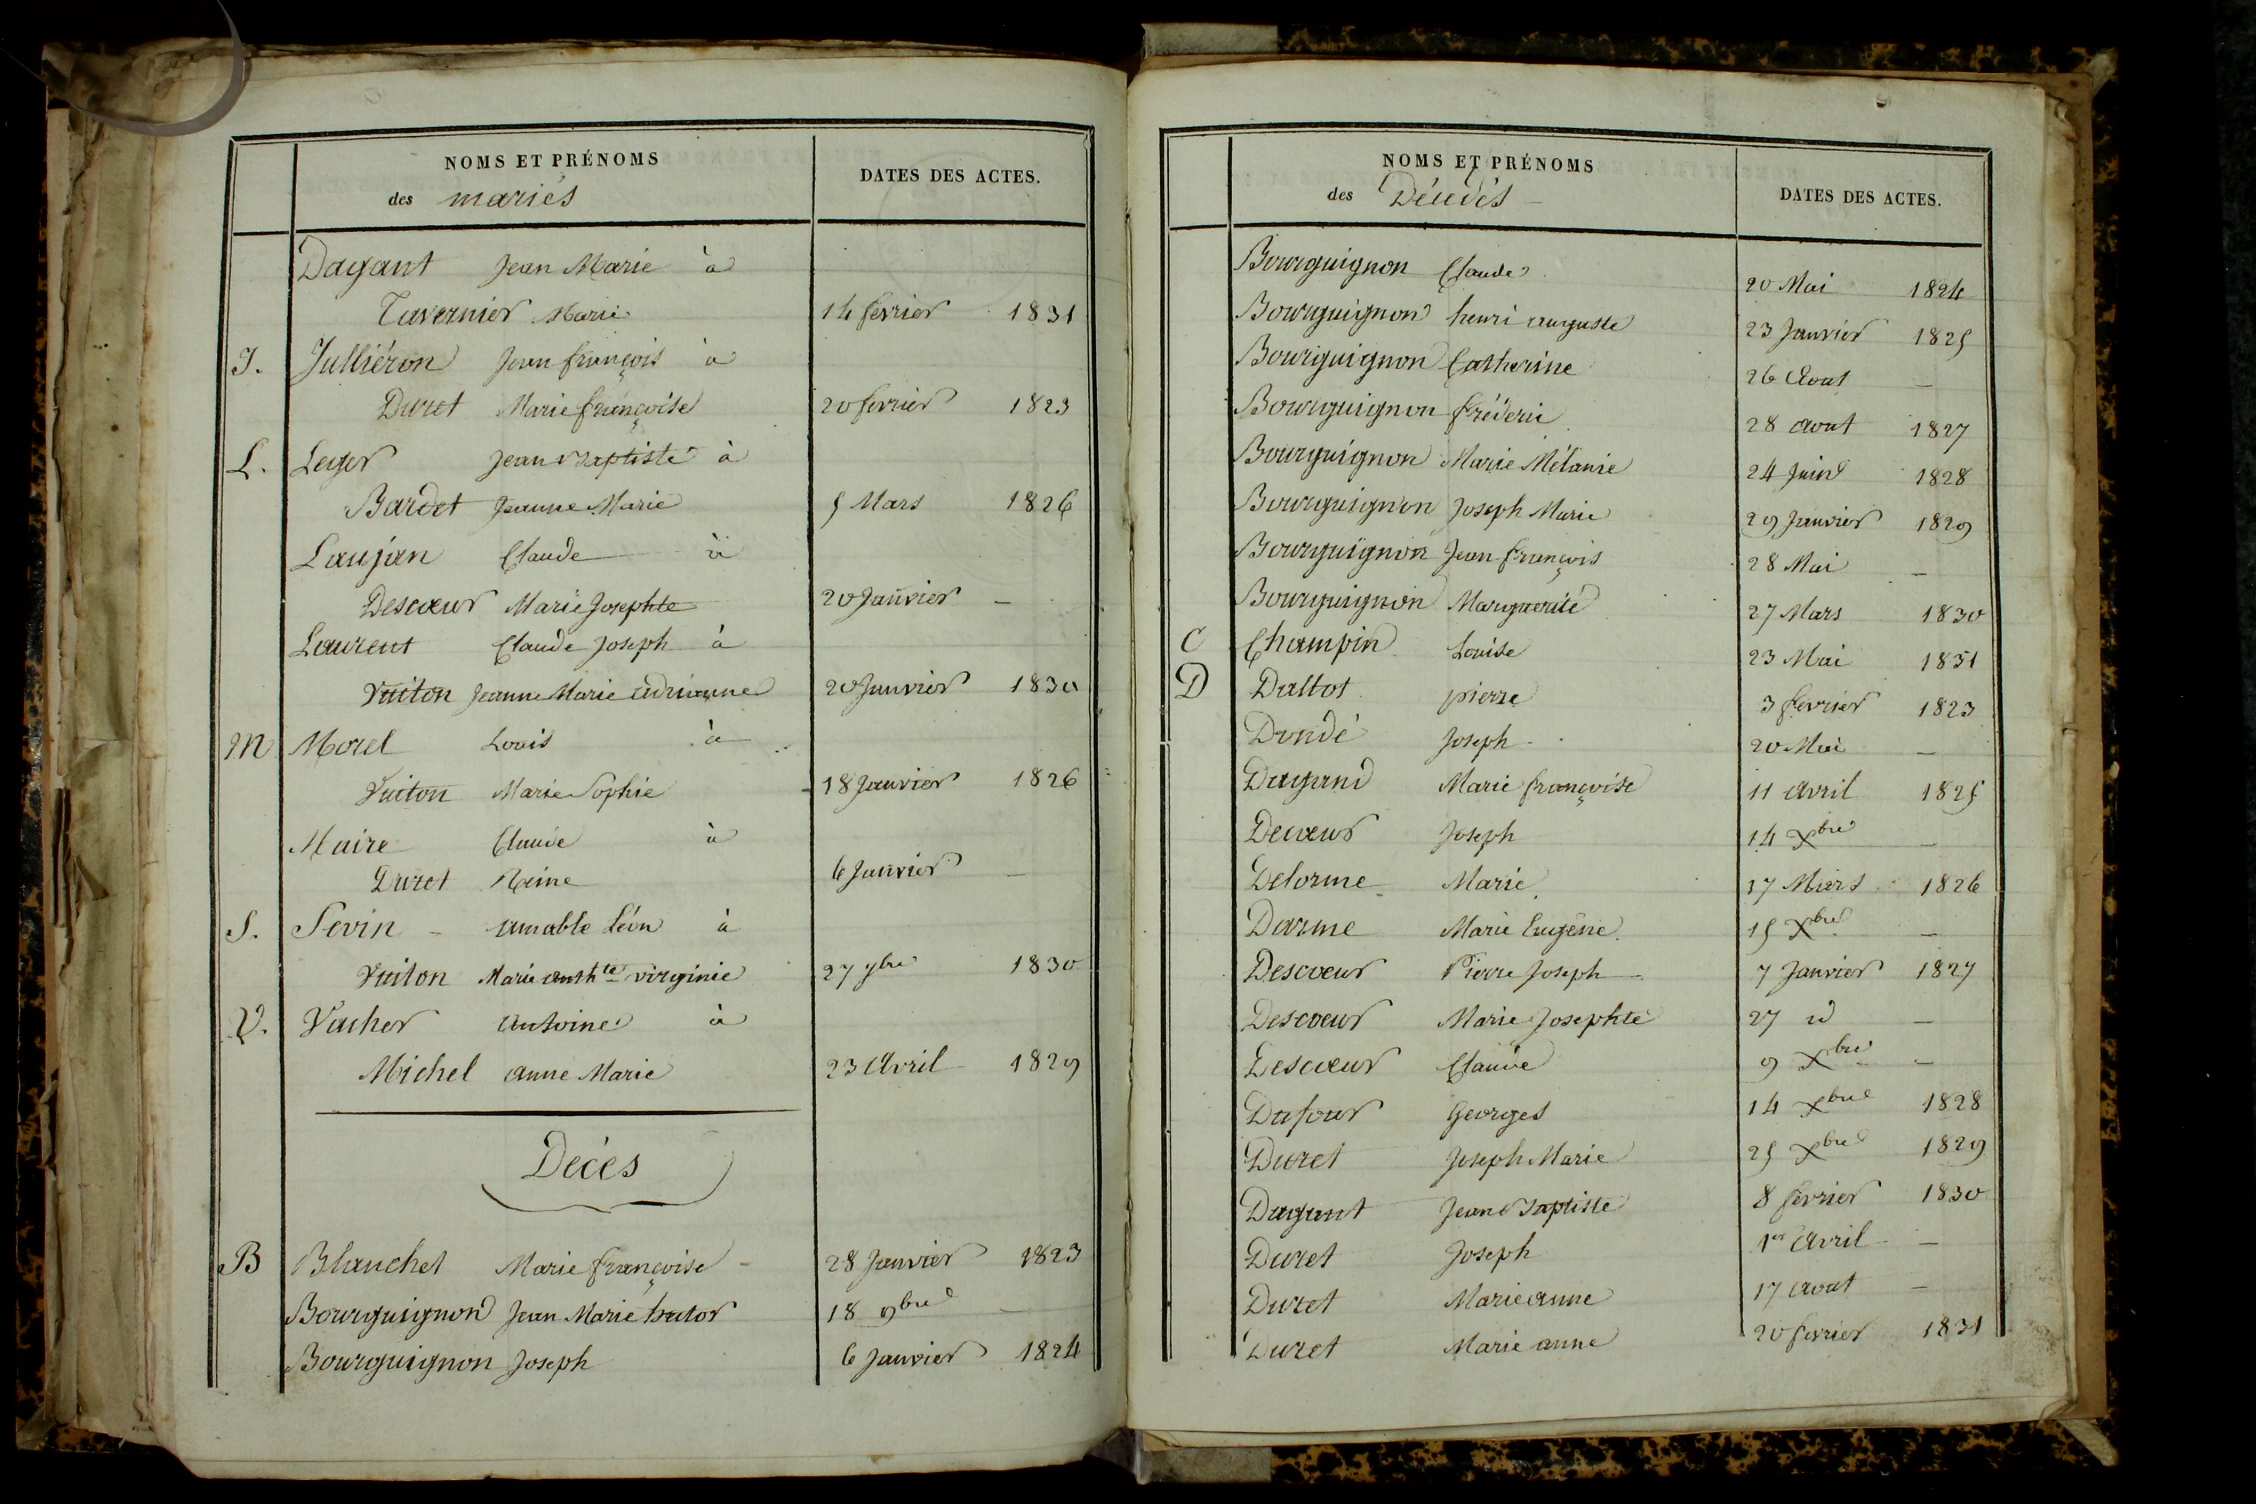 NOMS ET PRÉNOMS
des mariés
DATES DES ACTES.
Dagant Jean Marie à
Tavernier Marie 14 fevrier 1831
J. Julliéron Jean françois à
Duret Marie françoise 20 fevrier 1823
L. Leger Jean Baptiste à
Bardet Jeanne Marie 5 Mars 1826
Laujan Claude à
Descœur Marie Josephte 20 Janvier —
Laurent Claude Joseph à
Vuiton Jeanne Marie adrianne 20 Janvier 1830
M Morel Louis à
Vuiton Marie Sophie 18 Janvier 1826
Maire Claude à
Duret Reine 6 Janvier —
S. Sevin - amable Léon à
Vuiton Marie anthte virginie 27 7bre 1830
V. Vacher antoine à
Michel anne Marie 23 Avril 1829
Décès
B Blanchet Marie françoise - 28 Janvier 1823
Bourguignon Jean Marie hector 18 9bre —
Bourguignon Joseph 6 Janvier 1824
NOMS ET PRÉNOMS
des Décédés -
DATES DES ACTES.
Bourguignon Claude 20 Mai 1824
Bourguignon henri auguste 23 Janvier 1825
Bourguignon Catherine 26 Aout —
Bourguignon fréderic 28 aout 1827
Bourguignon Marie Mélanie 24 Juin 1828
Bourguignon Joseph Marie 29 Janvier 1829
Bourguignon Jean françois 28 Mai —
Bourguignon Marguerite 27 Mars 1830
C Champin Louise 23 Mai 1831
D Daltot pierre 3 fevrier 1823
Dondé Joseph - 20 Mai —
Dagand Marie françoise 11 avril 1825
Decœur Joseph 14 Xbre —
Delorme Marie 17 Mars 1826
Darme Marie Eugénie 15 Xbre —
Descœur Pierre Joseph 7 Janvier 1827
Descœur Marie Josephte 27 id —
Descœur Claude 9 Xbre —
Dufour Georges 14 Xbre 1828
Duret Joseph Marie 25 Xbre 1829
Dagant Jean Baptiste 8 fevrier 1830
Duret Joseph 1er Avril —
Duret Marie anne 17 Aout —
Duret Marie anne 20 fevrier 1831